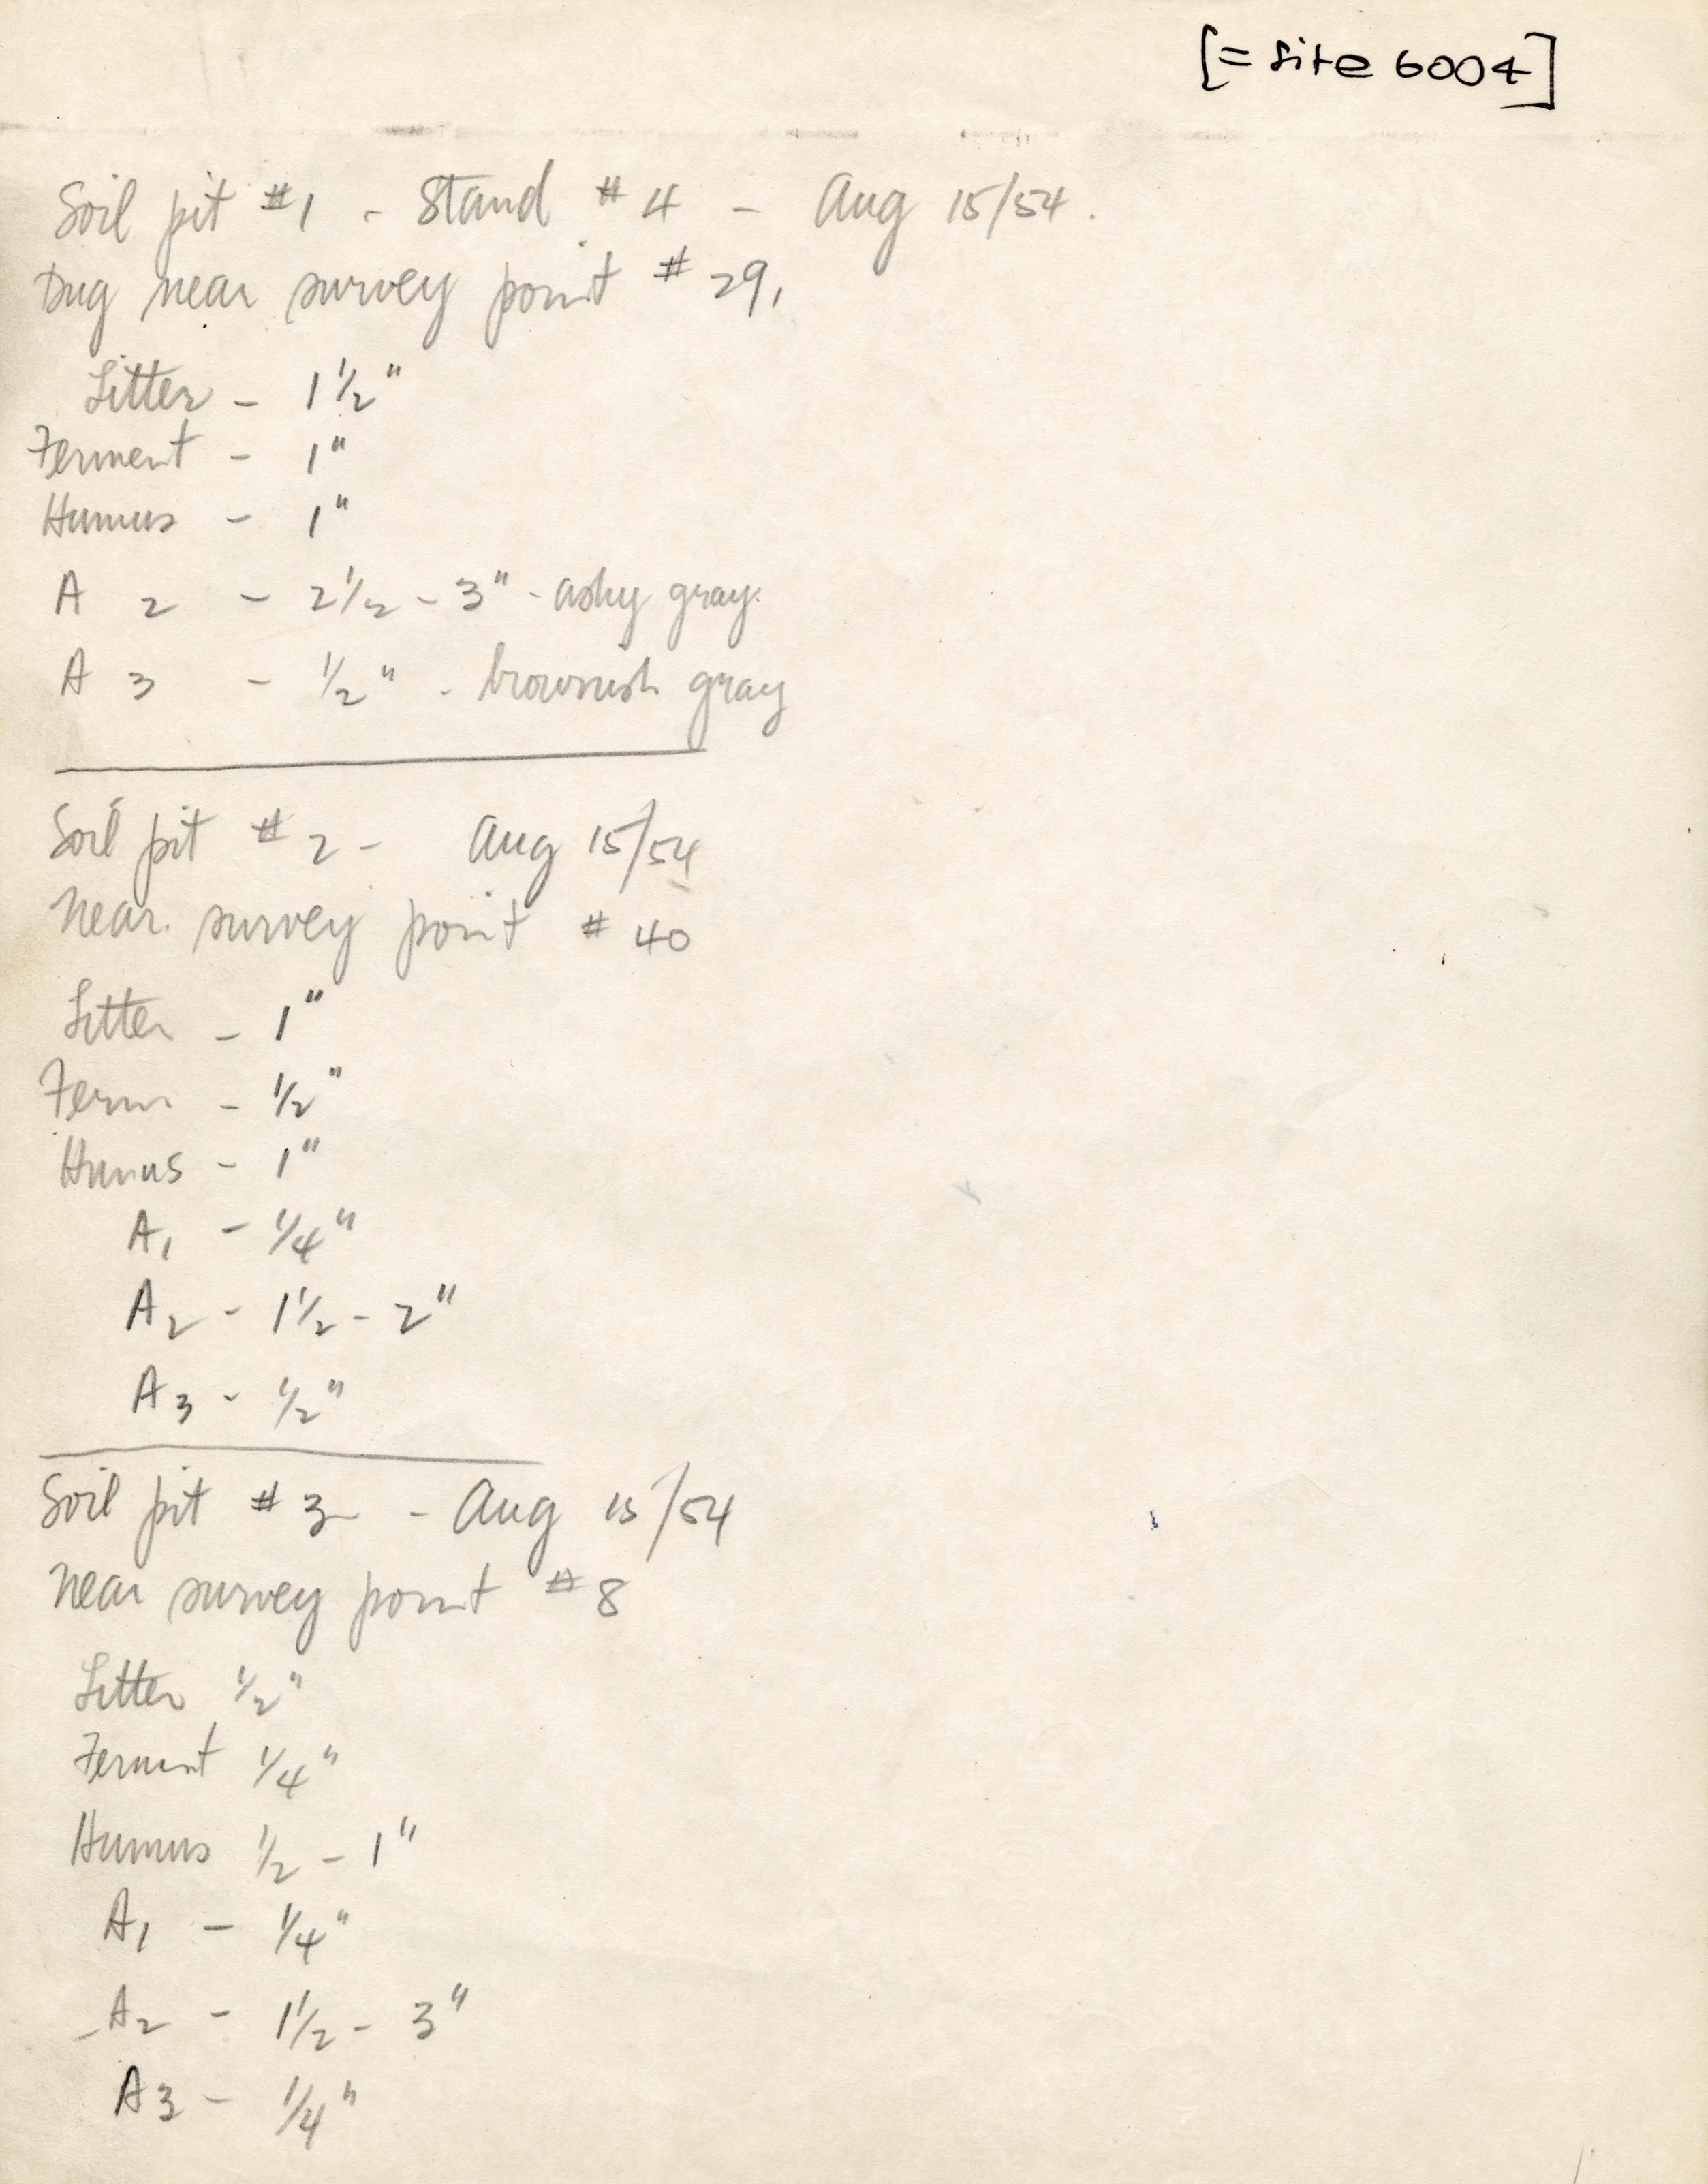 [= site 6004]
Soil pit #1 - Stand #4 - Aug 15/54.
Dug near survey point #29,
Litter - 1 1/2"
Ferment - 1"
Humus - 1"
A 2 - 2 1/2 - 3" - ashy gray.
A 3 - 1/2" - brownish gray
Soil pit #2 - Aug 15/54
Near survey point #40
Litter - 1"
Ferm - 1/2"
Humus - 1"
A1 - 1/4"
A2 - 1 1/2 - 2"
A3 - 1/2"
Soil pit #3 - Aug 15/54
Near survey point #8
Litter 1/2"
Ferment 1/4"
Humus 1/2 - 1"
A1 - 1/4"
A2 - 1 1/2 - 3"
A3 - 1/4"